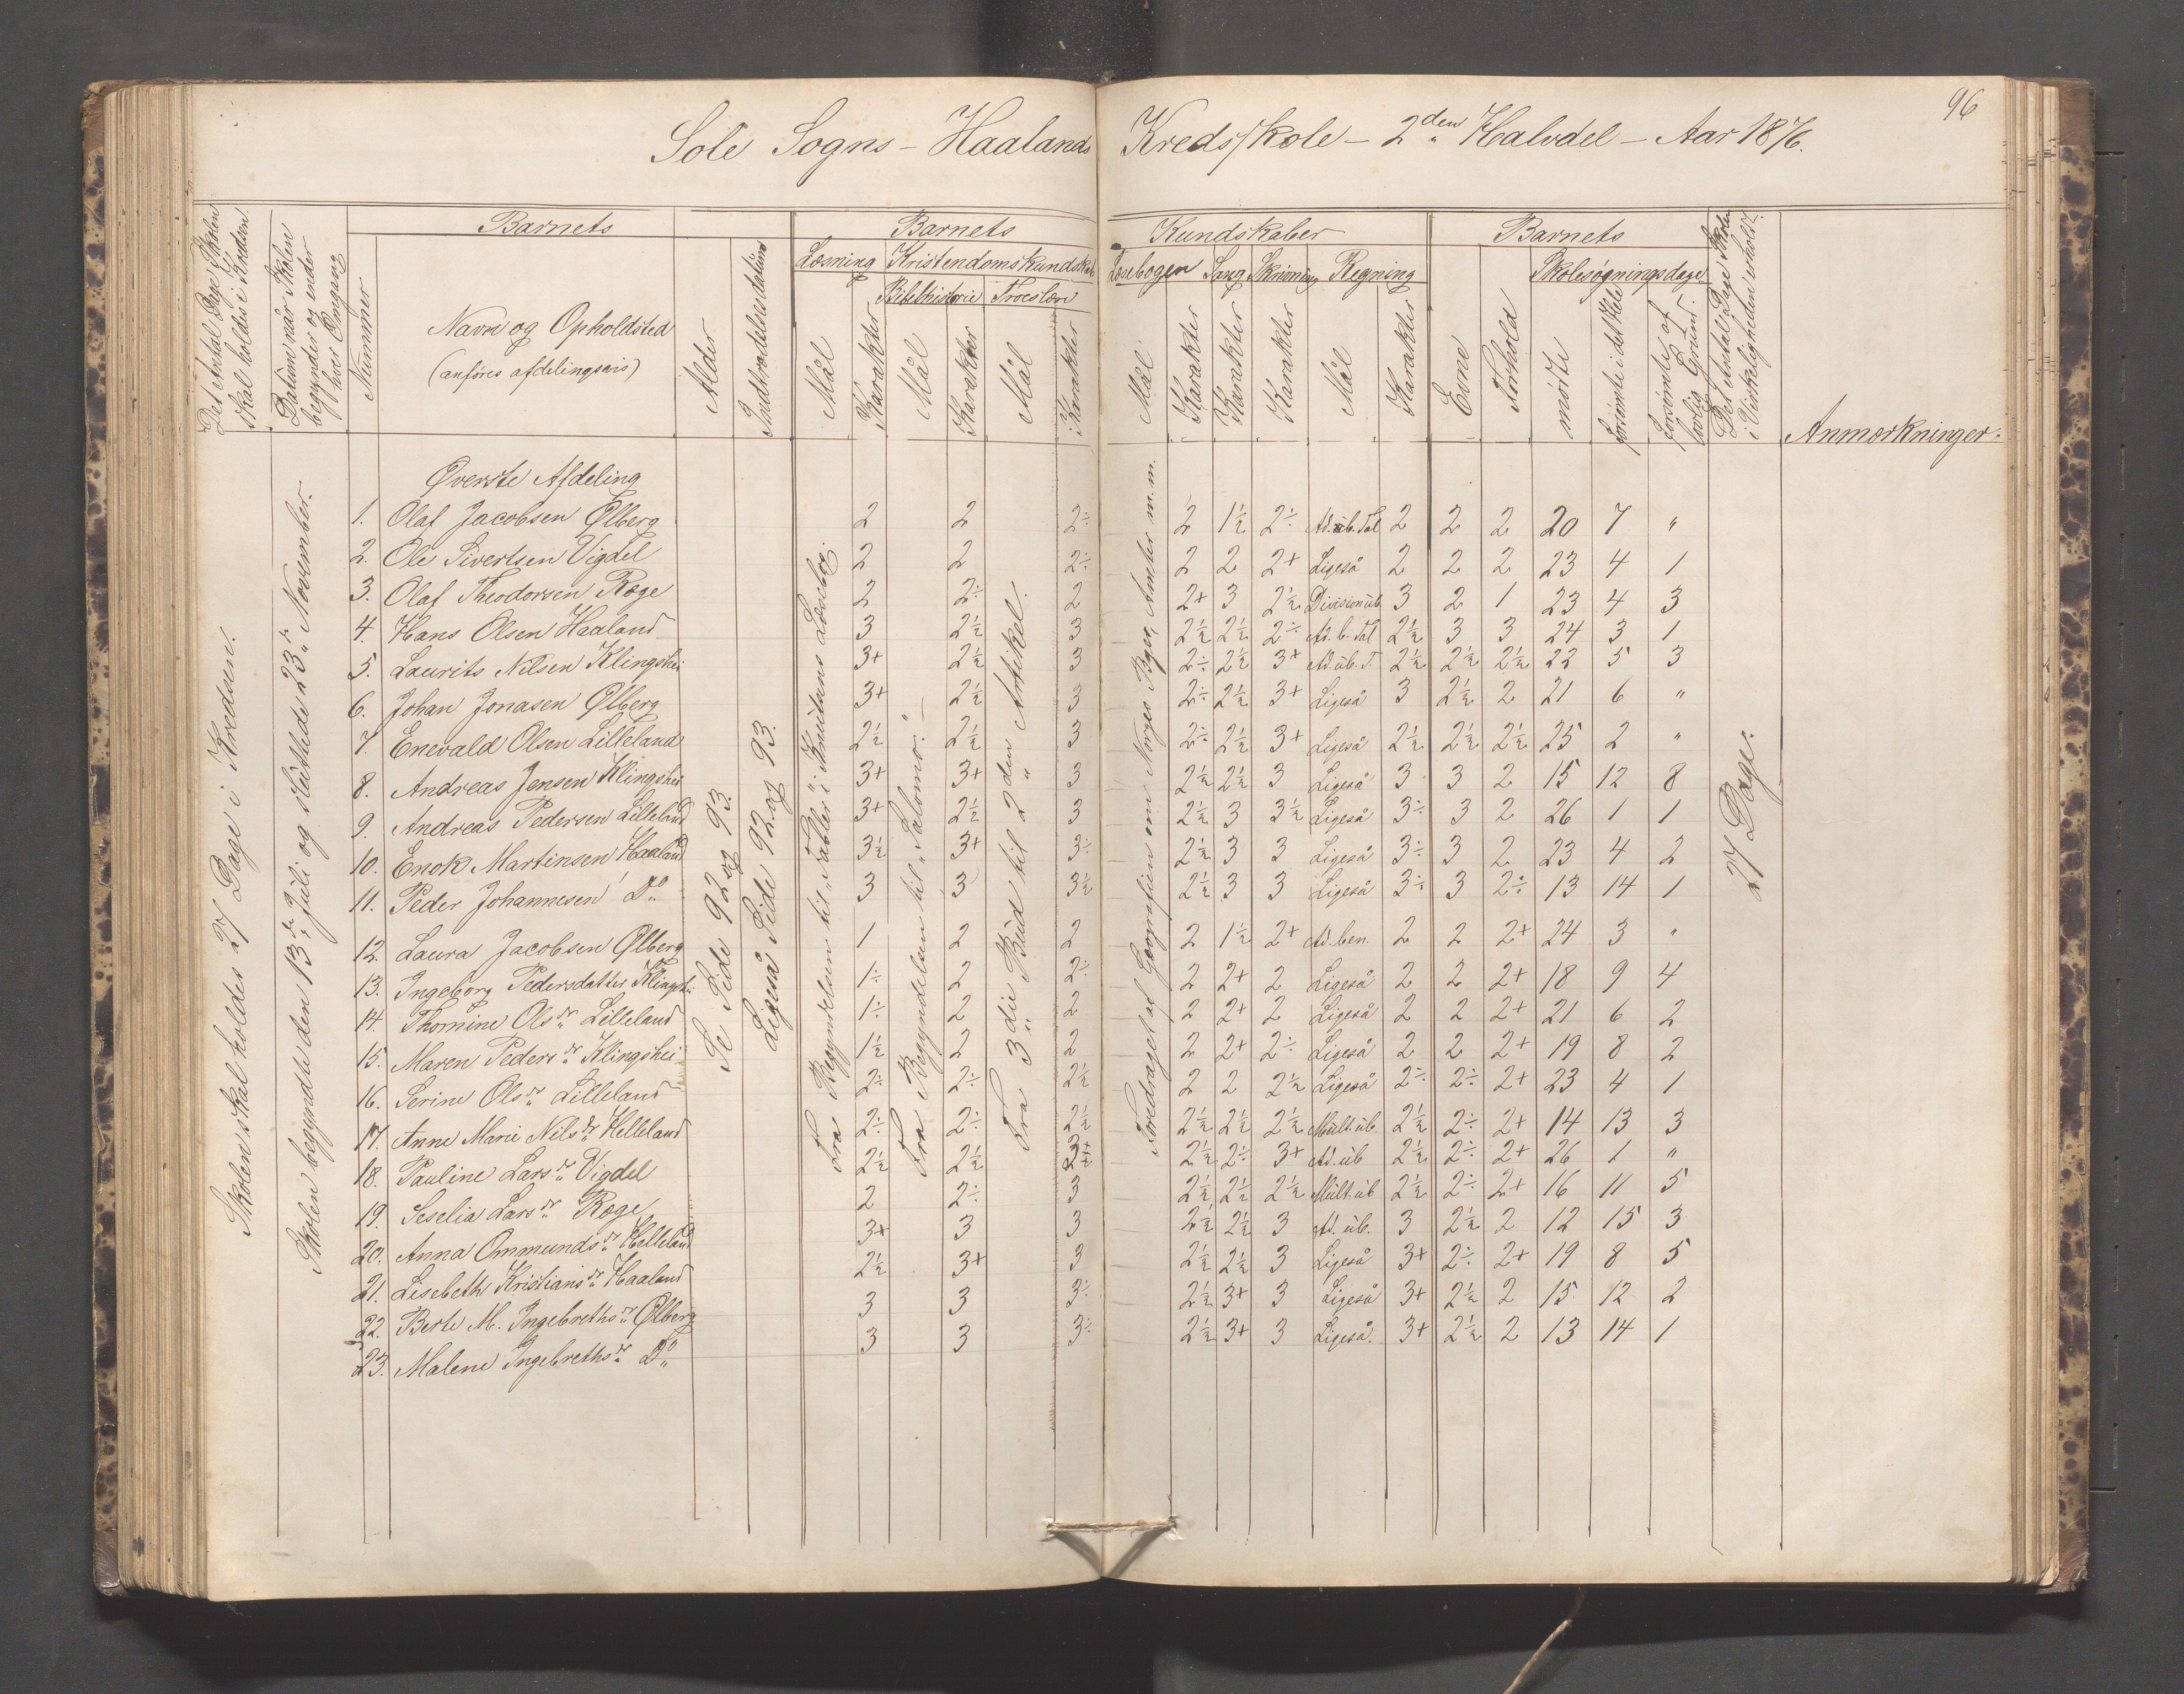 96
Sole Sogns – Haalands Kredsskole – 2den Halvdel – Aar 1876.
Det Antal Dage Skolen skal holdes i Kredsen.
Datum når Skolen begynder og ender hver Omgang
Barnets
Nummer
Navn og Opholdsted
(anføres afdelingsvis)
Alder
Indtrædelsesdatum
Barnets Kundskaber
Læsning Kristendomskundskab Læsebogen Sang Skrivning Regning
Bibelhistorie Troeslære
Mål Karakter Mål Karakter Mål Karakter Mål Karakter Karakter Karakter Mål Karakter
Barnets
Evne Forhold
Skolesøgningsdage
mødte forsømte i det Hele forsømte af lovlig Grund.
Det Antal Dage Skolen i Virkeligheden er holdt.
Anmærkninger.
Skolen skal holdes 27 Dage i Kredsen.
Skolen begyndte den 13de Juli og sluttede 23de November.
Se Side 92 og 93.
Ligeså Side 92 og 93.
Fra Begyndelsen til „Fabler“ i Knutsens Læsebog.
Fra Begyndelsen til „Salomo“. –
Fra 3die Bud til 2den Artikel.
Foredraget af Geografien om Norges Byer, Amter m. m.
27 Dage.
Øverste Afdeling
1. Olaf Jacobsen Ølberg 2 2 2÷ 2 1½ 2÷ Ad. ub. Tal 2 2 2 20 7 „
2. Ole Sivertsen Vigdel 2 2 2÷ 2 2 2+ Ligeså 2 2 2 23 4 1
3. Olaf Theodorsen Røge 2 2÷ 2 2+ 3 2½ Division ub. 3 2 1 23 4 3
4. Hans Olsen Haaland 3 2½ 3 2½ 2½ 2÷ Ad. b. Tal 2½ 3 3 24 3 1
5. Laurits Nilsen Klingshei 3+ 2½ 3 2÷ 2½ 3+ Ad. ub. T. 2½ 2½ 2½ 22 5 3
6. Johan Jonasen Ølberg 3+ 2½ 3 2÷ 2½ 3+ Ligeså 3 2½ 2 21 6 „
7. Enevald Olsen Lilleland 2½ 2½ 3 2÷ 2½ 3+ Ligeså 2½ 2½ 2½ 25 2 „
8. Andreas Jensen Klingshei 3+ 3+ 3 2½ 2½ 3 Ligeså 3 3 2 15 12 8
9. Andreas Pedersen Lilleland 3+ 2½ 3 2½ 3 3½ Ligeså 3÷ 3 2 26 1 1
10. Enok Martinsen Haaland 3½ 3+ 3÷ 2½ 3 3 Ligeså 3÷ 3 2 23 4 2
11. Peder Johannesen Do 3 3 3½ 2½ 3 3 Ligeså 3÷ 3 2÷ 13 14 1
12. Laura Jacobsen Ølberg 1 2 2 2 1½ 2+ Ad. ben. 2 2 2+ 24 3 „
13. Ingeborg Pedersdatter Klingshei 1÷ 2 2÷ 2 2+ 2 Ligeså 2 2 2+ 18 9 4
14. Thomine Olsdr Lilleland 1÷ 2 2 2 2+ 2 Ligeså 2 2 2+ 21 6 2
15. Maren Pedersdr Klingshei 1½ 2 2 2 2+ 2÷ Ligeså 2 2 2+ 19 8 2
16. Serine Olsdr Lilleland 2÷ 2÷ 2½ 2 2 2½ Ligeså 2÷ 2÷ 2+ 23 4 1
17. Anne Marie Nilsdr Helleland 2÷ 2÷ 2½ 2½ 2½ 2½ Mult. ub. 2½ 2÷ 2+ 14 13 3
18. Pauline Larsdr Vigdel 2½ 2½ 2½ 2÷ 3+ Ad. ub 2½ 2÷ 2+ 26 1 „
19. Seselia Larsdr Røge 2 2÷ 3 2½ 2½ 2½ Mult. ub 2½ 2÷ 2+ 16 11 5
20. Anna Ommundsdr Helleland 3+ 3 3 2½ 2½ 3 Ad. ub. 3 2½ 2 12 15 3
21. Lisebeth Kristiansdr Haaland 2½ 3+ 3 2½ 2½ 3 Ligeså 3+ 2÷ 2+ 19 8 5
22. Berte M. Ingebrethsdr Ølberg 3 3 3÷ 2½ 3+ 3 Ligeså 3+ 2½ 2 15 12 2
23. Malene Ingebrethsdr Do 3 3 3÷ 2½ 3+ 3 Ligeså. 3+ 2½ 2 13 14 1